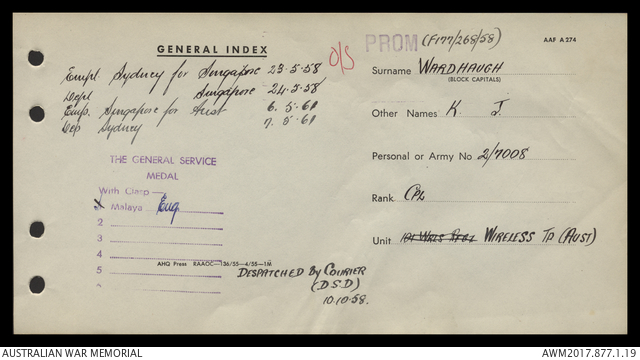 GENERAL INDEX
O/S
PROM (F177/268/58)
AAF A274
Empl Sydney for Singapore 23.5.58
Depl Singapore 24.5.58
Emp. Singapore for Aust 6.5.61
Dep Sydney 7.5.61
Surname WARDHAUGH
(BLOCK CAPITALS)
Other Names K. J.
Personal or Army No 2/7008
Rank CPL
Unit WIRELESS TP (AUST)
THE GENERAL SERVICE
MEDAL
With Clasp—
1 Malaya Eng
2
3
4
5
AHQ Press RAAOC—136/55—4/55—1M
DESPATCHED By COURIER
(D.S.D)
10.10.58.
AUSTRALIAN WAR MEMORIAL
AWM2017.877.1.19